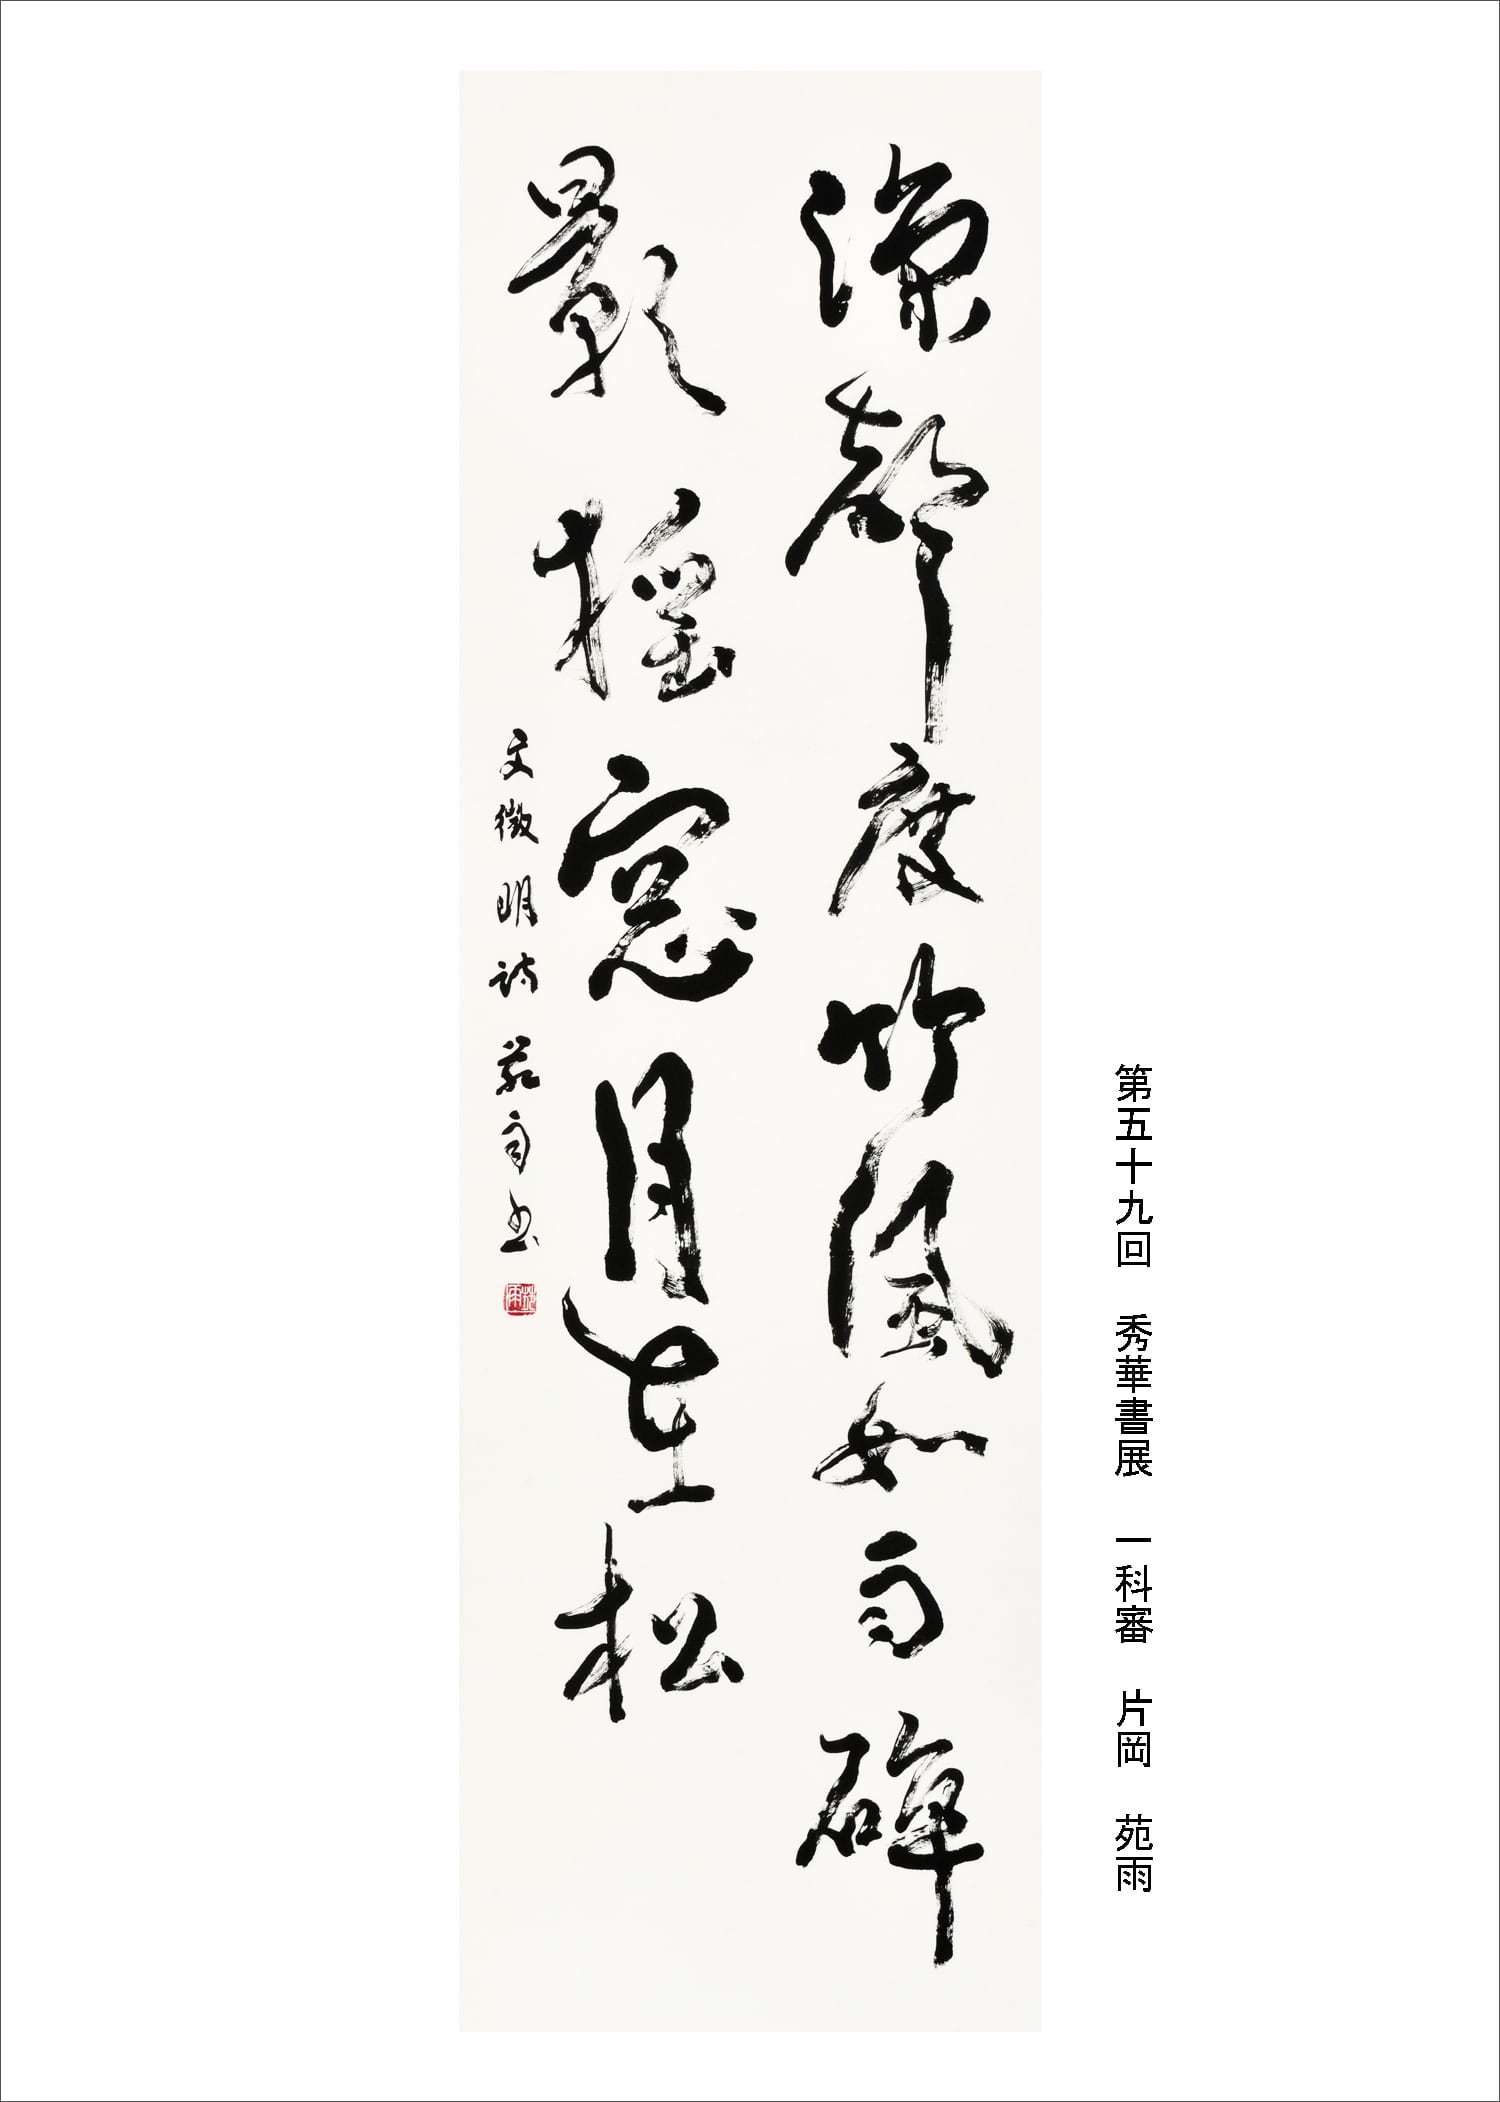 第五十九回 秀華書展 一科審 片岡 苑雨
涼聲度竹風如雨碎
影搖窓月在松
文徵明詩 苑雨書
苑雨